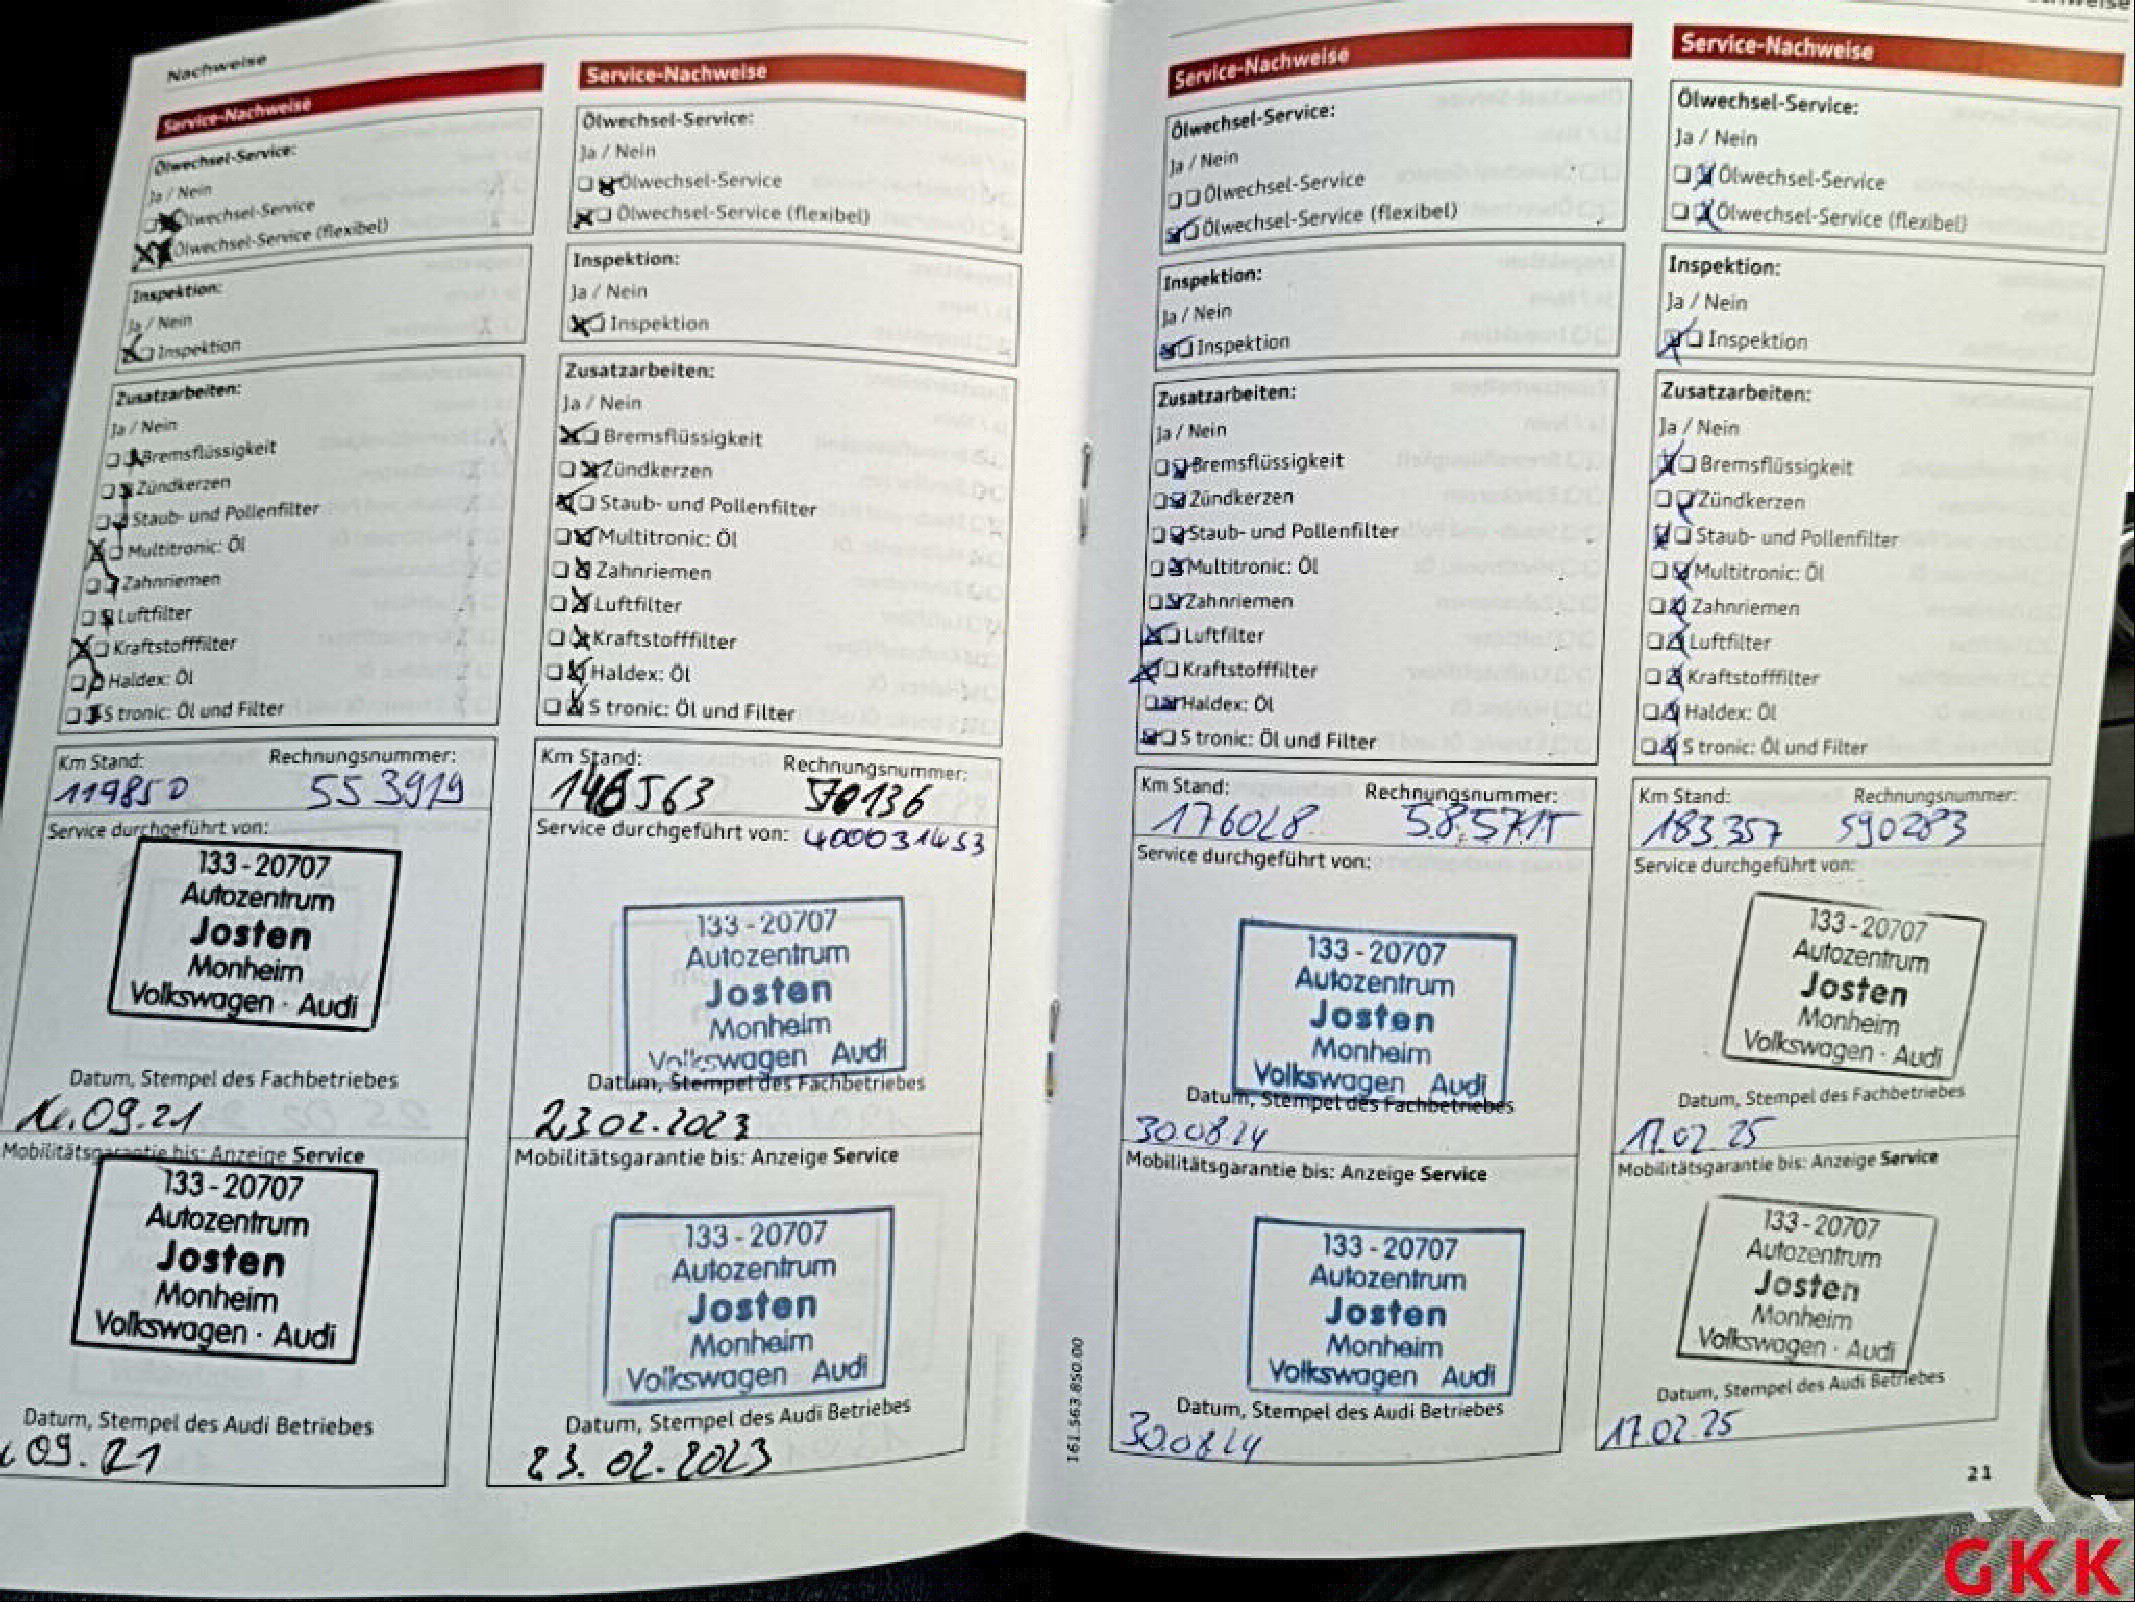 Nachweise
Service-Nachweise
Ölwechsel-Service:
Ja / Nein
Ölwechsel-Service
Ölwechsel-Service (flexibel)
Inspektion:
Ja / Nein
Inspektion
Zusatzarbeiten:
Ja / Nein
Bremsflüssigkeit
Zündkerzen
Staub- und Pollenfilter
Multitronic: Öl
Zahnriemen
Luftfilter
Kraftstofffilter
Haldex: Öl
S tronic: Öl und Filter
Km Stand: Rechnungsnummer:
119850 553919
Service durchgeführt von:
133-20707
Autozentrum
Josten
Monheim
Volkswagen · Audi
Datum, Stempel des Fachbetriebes
09.21
Mobilitätsgarantie bis: Anzeige Service
133-20707
Autozentrum
Josten
Monheim
Volkswagen · Audi
Datum, Stempel des Audi Betriebes
09.21
Service-Nachweise
Ölwechsel-Service:
Ja / Nein
Ölwechsel-Service
Ölwechsel-Service (flexibel)
Inspektion:
Ja / Nein
Inspektion
Zusatzarbeiten:
Ja / Nein
Bremsflüssigkeit
Zündkerzen
Staub- und Pollenfilter
Multitronic: Öl
Zahnriemen
Luftfilter
Kraftstofffilter
Haldex: Öl
S tronic: Öl und Filter
Km Stand: Rechnungsnummer:
146563 70136
Service durchgeführt von: 4000031453
133-20707
Autozentrum
Josten
Monheim
Volkswagen Audi
Datum, Stempel des Fachbetriebes
23.02.2023
Mobilitätsgarantie bis: Anzeige Service
133-20707
Autozentrum
Josten
Monheim
Volkswagen Audi
Datum, Stempel des Audi Betriebes
23.02.2023
Service-Nachweise
Ölwechsel-Service:
Ja / Nein
Ölwechsel-Service
Ölwechsel-Service (flexibel)
Inspektion:
Ja / Nein
Inspektion
Zusatzarbeiten:
Ja / Nein
Bremsflüssigkeit
Zündkerzen
Staub- und Pollenfilter
Multitronic: Öl
Zahnriemen
Luftfilter
Kraftstofffilter
Haldex: Öl
S tronic: Öl und Filter
Km Stand: Rechnungsnummer:
176028
Service durchgeführt von:
133-20707
Autozentrum
Josten
Monheim
Volkswagen Audi
Datum, Stempel des Fachbetriebes
30.08.24
Mobilitätsgarantie bis: Anzeige Service
133-20707
Autozentrum
Josten
Monheim
Volkswagen Audi
Datum, Stempel des Audi Betriebes
30.08.24
161.563.850.00
Service-Nachweise
Ölwechsel-Service:
Ja / Nein
Ölwechsel-Service
Ölwechsel-Service (flexibel)
Inspektion:
Ja / Nein
Inspektion
Zusatzarbeiten:
Ja / Nein
Bremsflüssigkeit
Zündkerzen
Staub- und Pollenfilter
Multitronic: Öl
Zahnriemen
Luftfilter
Kraftstofffilter
Haldex: Öl
S tronic: Öl und Filter
Km Stand: Rechnungsnummer:
183.357 590283
Service durchgeführt von:
133-20707
Autozentrum
Josten
Monheim
Volkswagen · Audi
Datum, Stempel des Fachbetriebes
17.02.25
Mobilitätsgarantie bis: Anzeige Service
133-20707
Autozentrum
Josten
Monheim
Volkswagen · Audi
Datum, Stempel des Audi Betriebes
17.02.25
21
GKK